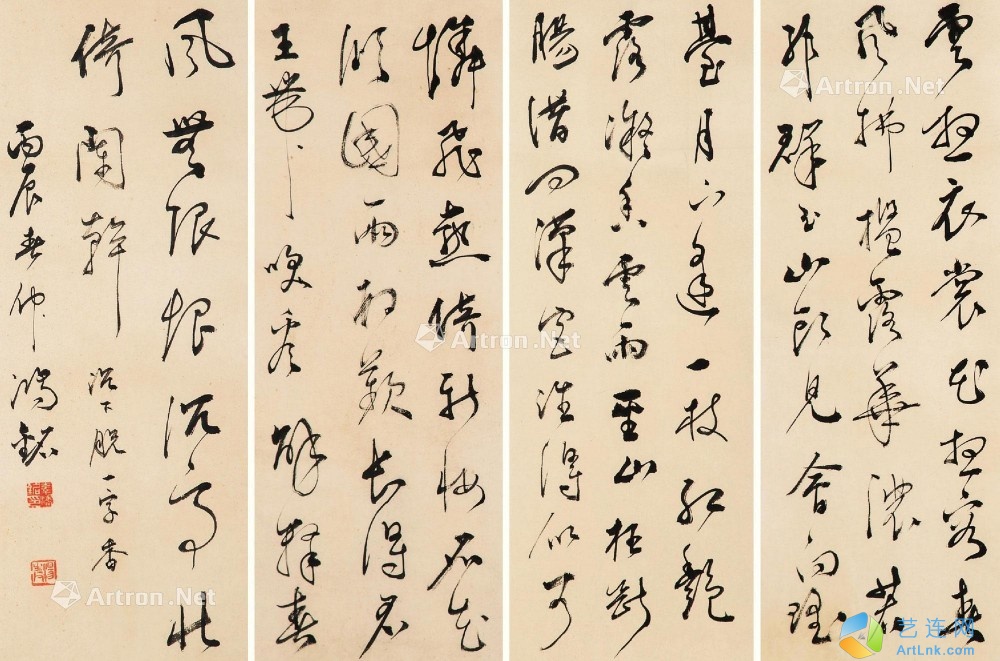 雲想衣裳花想容春
風拂檻露華濃若
非群玉山頭見會向瑤
臺月下逢一枝紅艷
露凝香雲雨巫山枉斷
腸借問漢宮誰得似可
憐飛燕倚新妝名花
傾國兩相歡長得君
王帶笑看解釋春
風無限恨沉亭北
倚闌幹 沉下脫一字香
丙辰春仲 鴻銘
Artron.Net
Artron.Net
Artron.Net
Artron.Net
Artron.Net
艺连网
ArtLnk.com